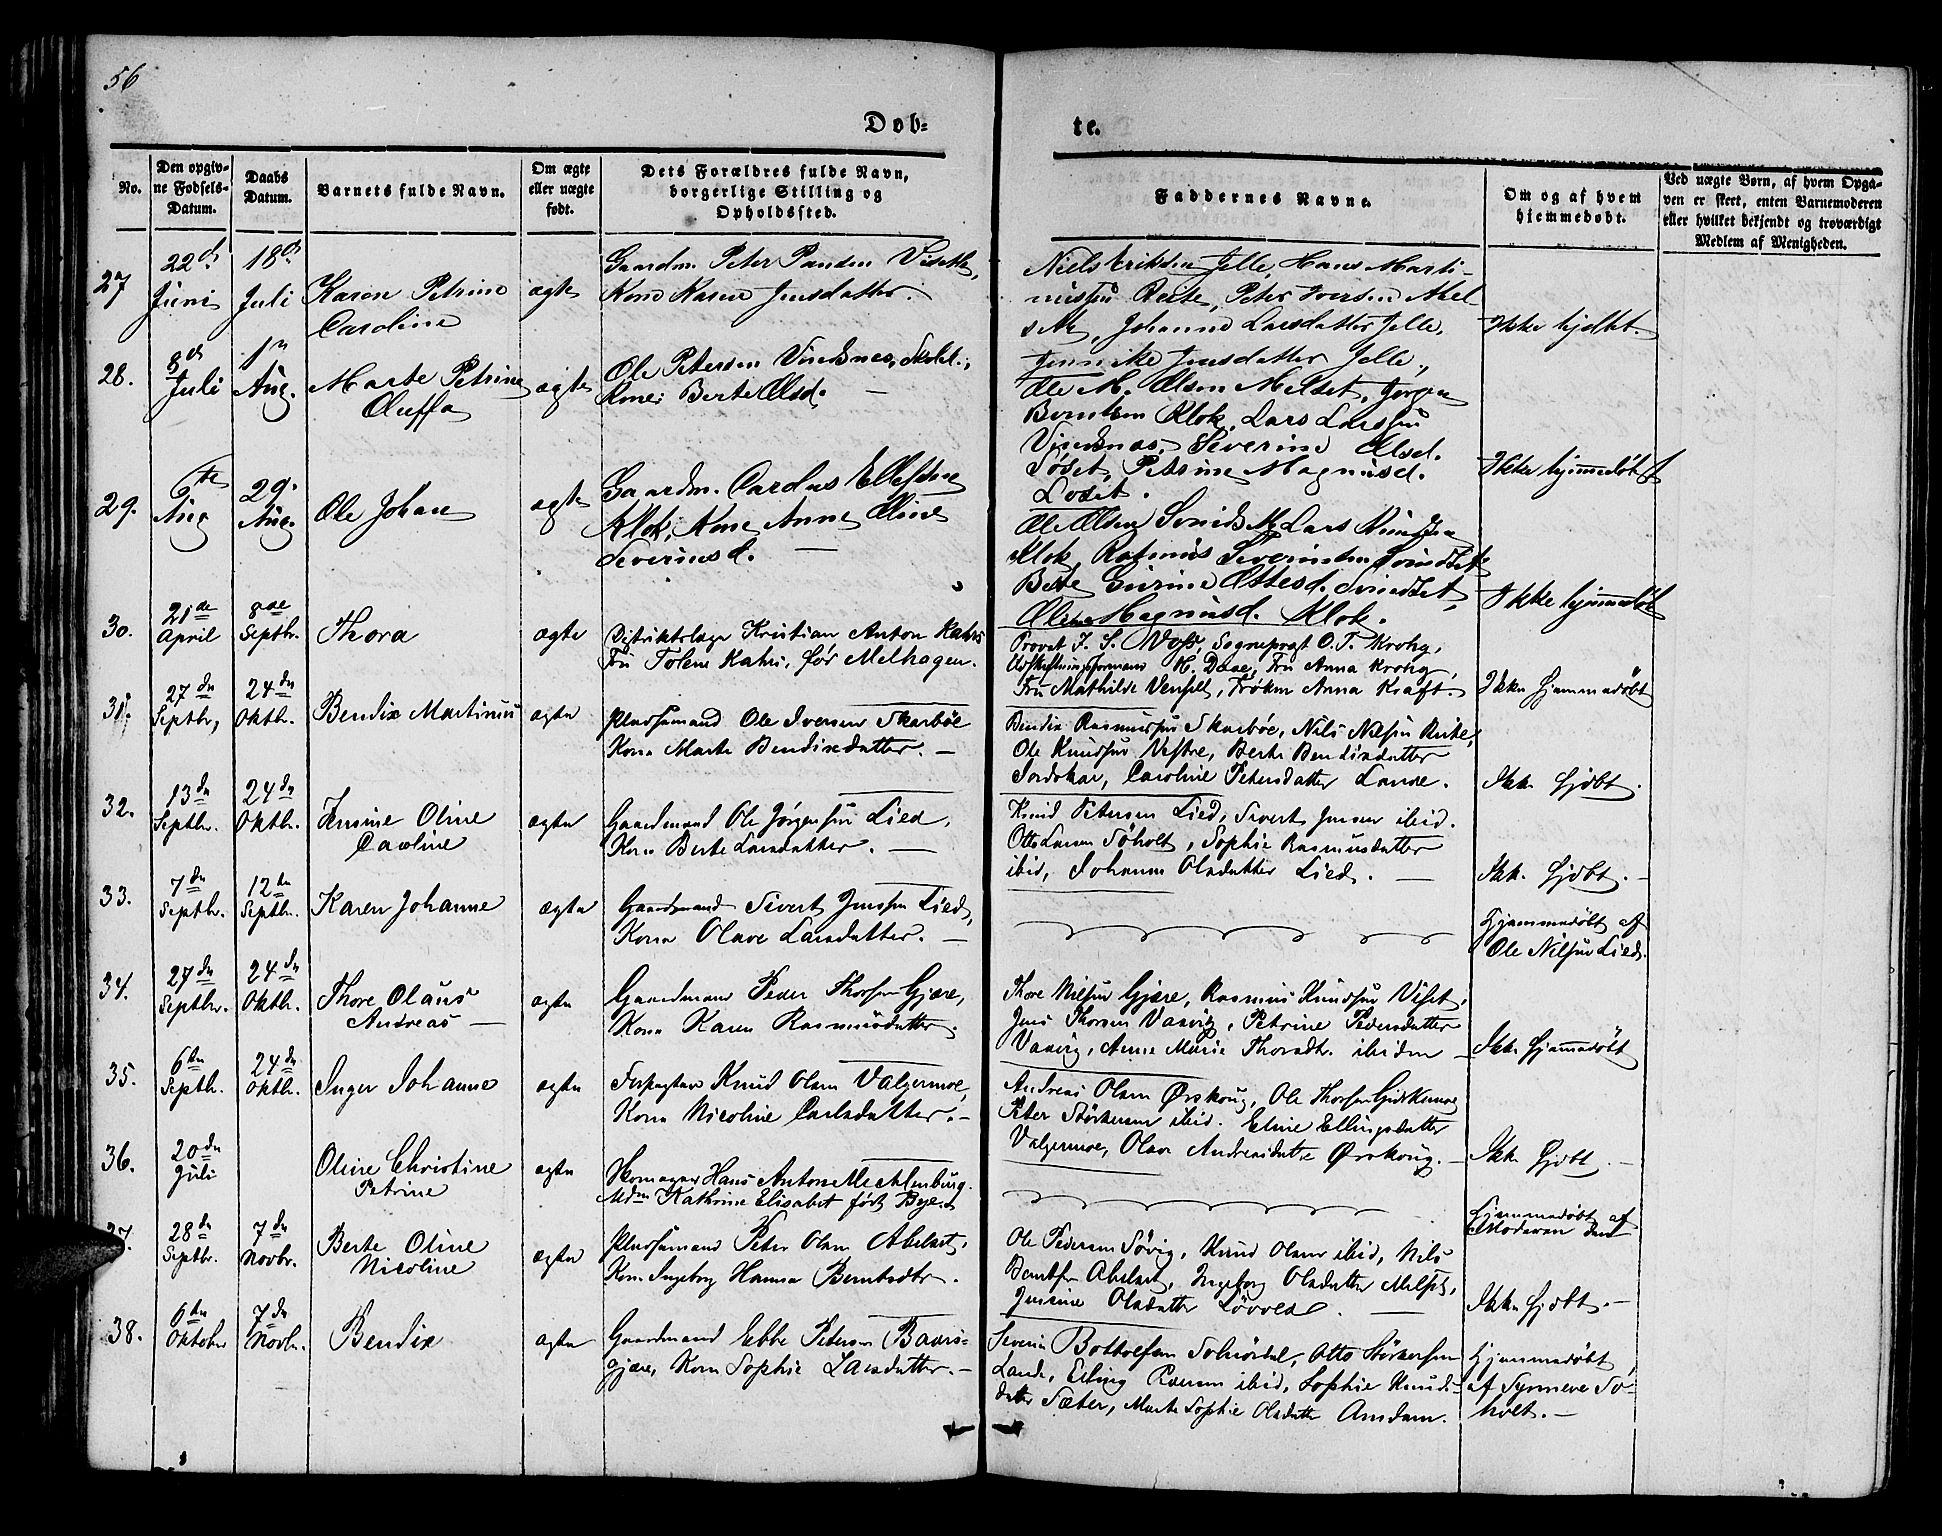 56
Døb=
te.
No.
Den opgiv-
ne Fødsels-
Datum.
Daabs
Datum.
Barnets fulde Navn.
Om ægte
eller uægte
født.
Dets Forældres fulde Navn,
borgerlige Stilling og
Opholdssted.
Faddernes Navne.
Om og af hvem
hjemmedøbt.
Ved uægte Børn, af hvem Opga-
ven er skeet, enten Barnemoderen
eller hvilket bekjendt og troværdigt
Medlem af Menigheden.
27
22d
Juni
18d
Juli
Karen Petrine
Caroline
ægte
Gaardm. Peter
Kone Karen Jensdatter.
Niels Eriksen Jelle, Hans Marti-
Peter Iversen
Johanne Larsdatter Jelle,
Jensdatter Jelle.
Ikke hjdbt.
28.
8d
Juli
1n
Aug.
Marte Petrine
Oluffa
ægte
Ole Petersen Vindsnes, Skolel.,
Kone: Berte Olsd. —
Ole M. Olsen Melset, Jørgen
Berntsen Klok, Lars Larsen
Vindsnes, Severine Olsd.
Søset, Petrine Magnusd.
Ikke hjmmedøbt
29.
6te
Aug
29.
Aug.
Ole Johan
ægte
Gaardm. Carolus Ellefsen
Klok, Kone Anne Oline
Severinsd. —
Ole Olsen Lars Knudsen
Klok, Rasmus Severinsen
Berte Ottesd.
Magnusd. Klok.
Ikke hjmmedøbt
30.
21de
April
8de
Septbr.
Thora
ægte
Distriktslæge Kristian Anton Kahrs
Fru Tolene Kahrs, før Melhagen.
Provst J. S. Voss, Sognepræst O. T. Krohg,
Udskiftningsformand H. Daae, Fru Anna Krohg,
Fru Mathilde Frøken Anna Kraft
Ikke hjemmedøbt
31.
27de
Septbr,
24de
Oktbr.
Bendix Martinus
ægte
Pladsemand Ole Iversen Skarbøe
Kone Marte Bendixdatter. —
Bendix Rasmussen Skarbøe, Nils Nilsen
Ole Knudsen Vestre, Berte Bendixdatter
Caroline Petersdatter Lande.
Ikke hjdbt.
32.
13de
Septbr.
24de
Oktbr.
Jensine Oline
Caroline
ægte
Gaardmand Ole Jørgensen Lied,
Kone Berte Larsdatter. —
Knud Petersen Lied, Sivert Jensen ibid.
Otto Larsen Søholt, Sophie Rasmusdatter
ibid, Johanne Olsdatter Lied. —
Ikke hjdbt. —
33.
7de
Septbr.
12te
Septbr.
Karen Johanne
ægte
Gaardmand Sivert Jensen Lied,
Kone Olave Larsdatter. —
Hjemmedøbt af
Ole Nilsen Lied.
34.
27de
Septbr.
24de
Oktbr.
Thore Olaus
Andreas —
ægte
Gaardmand Peder Thorsen Gjære,
Kone Karen Rasmusdatter.
Thore Nilsen Gjære, Rasmus Knudsen Viset,
Jens Thorsen Vaavig, Petrine Pedersdatter
Vaavig, Anne Marie Thorsdtr. ibidem
Ikke hjemmedøbt
35.
6te
Septbr.
24de
Oktbr.
Inger Johanne
ægte
Forpagter Knud Olsen Valgermoe,
Kone Nicoline Carlsdatter. —
Andreas Olsen Ørskoug, Ole Thorsen
Peter Størkersen ibid. Eline Ellingsdatter
Valgermoe, Olave Andreasdatter Ørskoug. —
Ikke hjdbt. —
36.
20de
Juli
Oline Christine
Petrine
ægte
Skomager Hans Anton Mechlenburg.
Mdm Kathrine Elisabet født Bye.
Hjemmedøbt af
Moderen
37.
28de
Septbr.
7de
Novbr.
Berte Oline
Nicoline
ægte
Pladsemand Peter Olsen Abelset.
Kone Ingeborg Hanna Berntsdtr.
Ole Pedersen Søvig, Knud Olsen ibid, Nils
Berntsen Abelset, Ingeborg Olsdatter Melset,
Jensine Olsdatter Løvold. —
Ikke hjdbt. —
38.
6te
Oktober
7de
Novbr.
Bendix
ægte
Gaardmand Ebbe Petersen Baars-
gjære, Kone Sophie Larsdatter. —
Severin Bottolfsen Solnørdal, Otto Størkersen
Lande, Elling Pedersen ibid, Sophie Knuds-
datter Sæter, Marte Sophie Olsdatter Amdam.
Hjemmedøbt
af Synneve Sø-
holt. —